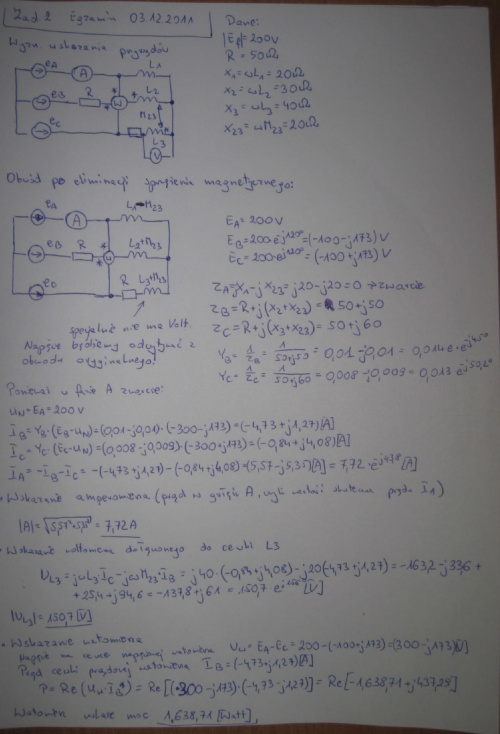 Zad 2 Egzamin 03.12.2011
Dane:
|Ef|=200V
R = 50Ω
x1=ωL1=20Ω
x2=ωL2=30Ω
x3=ωL3=40Ω
x23=ωM23=20Ω
Wyzn. wskazania przyrządów
eA A L1
eB R W L2
M23
eC L3
V
Obwód po eliminacji sprzężenia magnetycznego:
eA A L1-M23
eB R W L2+M23
eC R L3+M23
specjalnie nie ma Volt.
Napięcie będziemy odczytywać z
obwodu oryginalnego!
EA=200V
EB=200·e-j120°=(-100-j173)V
EC=200·ej120°=(-100+j173)V
ZA=jx1-jx23=j20-j20=0 → zwarcie
ZB=R+j(x2+x23)=50+j50
ZC=R+j(x3+x23)=50+j60
YB=1/ZB=1/50+j50=0,01-j0,01=0,014e-j45°
YC=1/ZC=1/50+j60=0,008-j0,009=0,013e-j50,2°
Ponieważ w fazie A zwarcie:
UN=EA=200V
IB=YB·(EB-UN)=(0,01-j0,01)·(-300-j173)=(-4,73+j1,27)[A]
IC=YC·(EC-UN)=(0,008-j0,009)·(-300+j173)=(-0,84+j4,08)[A]
IA=-IB-IC=-(-4,73+j1,27)-(-0,84+j4,08)=(5,57-j5,35)[A]=7,72·ej43,8[A]
• Wskazanie amperomierza (prąd w gałęzi A, czyli wartość skuteczna prądu I1)
|A|=√5,57²+5,35²=7,72A
• Wskazanie woltomierza dołączonego do cewki L3
UL3=jωL3·IC-jωM23·IB=j40·(-0,84+j4,08)-j20(-4,73+j1,27)=-163,2-j33,6+
+25,4+j94,6=-137,8+j61=150,7·ej156°[V]
|UL3|=150,7[V]
• Wskazanie watomierza
Napięcie na cewce napięciowej watomierza UW=EA-EC=200-(-100+j173)=(300-j173)[V]
Prąd cewki prądowej watomierza IB=(-4,73+j1,27)[A]
P=Re(UW·IB*)=Re[(300-j173)·(-4,73-j1,27)]=Re[-1638,71+j437,29]
Watomierz wskaże moc 1.638,71[Watt].